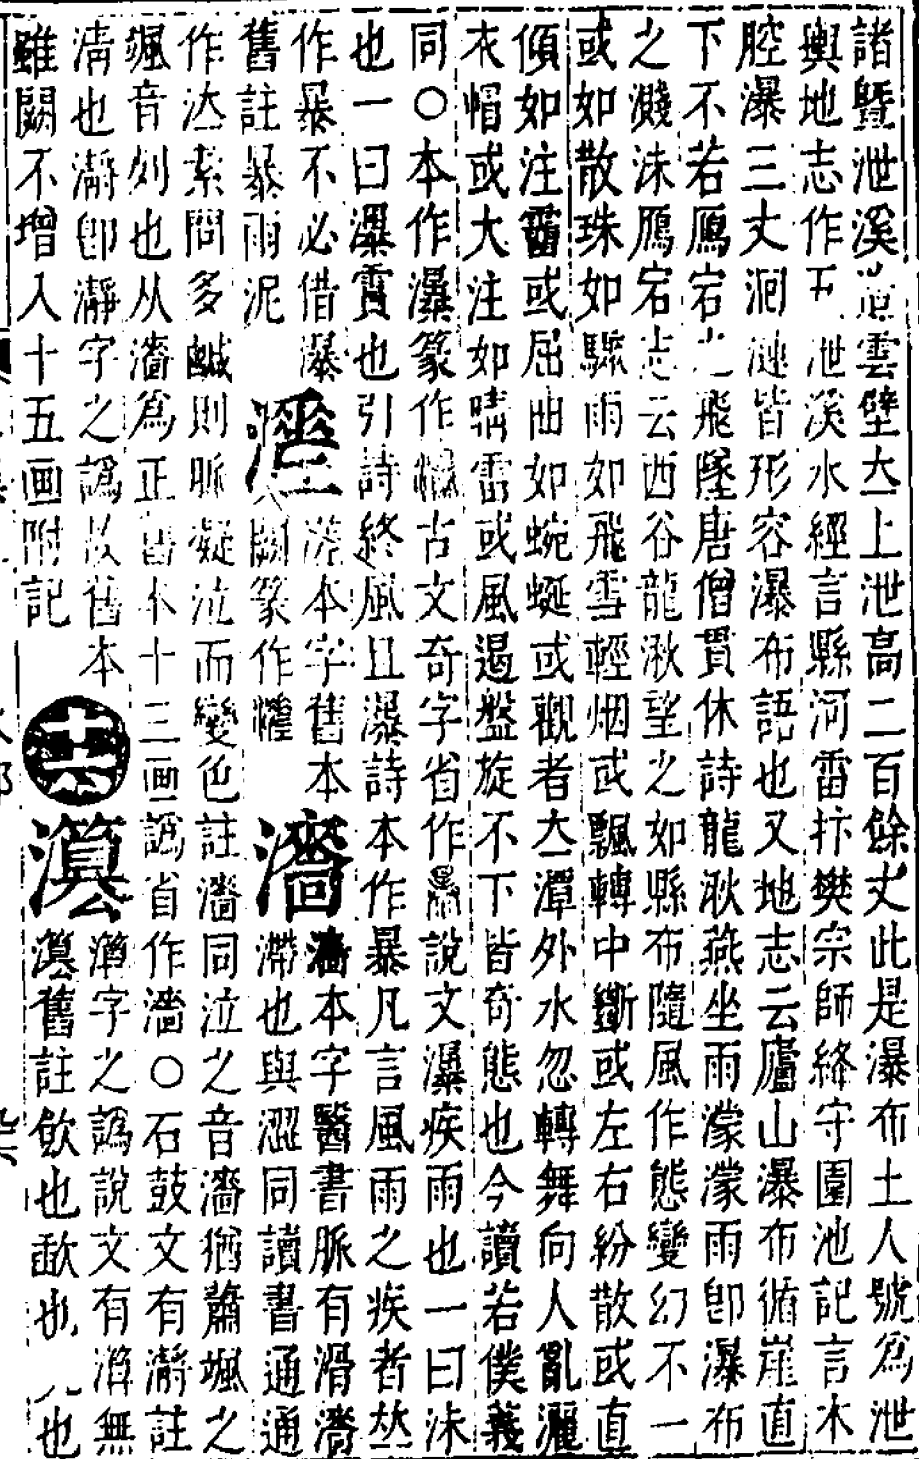 諸暨泄溪雲壁立上泄高二百餘丈此是瀑布土人號為泄
輿地志作五泄溪水經言縣河雷抃樊宗師絳守園池記言木
腔瀑三丈洄漣皆形容瀑布語也又地志云廬山瀑布循崖直
下不若鴈宕之飛墜唐僧貫休詩龍湫燕坐雨濛濛雨卽瀑布
之濺沫鴈宕志云西谷龍湫望之如縣布隨風作態變幻不一
或如散珠如驟雨如飛雪輕烟或飄轉中斷或左右紛散或直
傾如注霤或屈曲如蜿蜒或觀者立潭外水忽轉舞向人亂灑
衣帽或大注如晴雷或風遏盤旋不下皆奇態也今讀若僕義
同○本作瀑篆作古文奇字省作說文瀑疾雨也一曰沫
也一曰瀑霣也引詩終風且瀑詩本作暴凡言風雨之疾者竝
作暴不必借瀑
舊註暴雨泥
澀本字舊本
闕篆作
濇
濇本字醫書脈有滑濇
滯也與澀同讀書通通
作泣素問多鹹則脈凝泣而變色註濇同泣之音濇猶蕭颯之
颯音列也从濇為正舊本十三画譌省作濇○石鼓文有瀞註
清也瀞卽瀞字之譌故舊本
字之譌說文有無
雖闕不增入十五画附記
十六
舊註飲也歃也 也